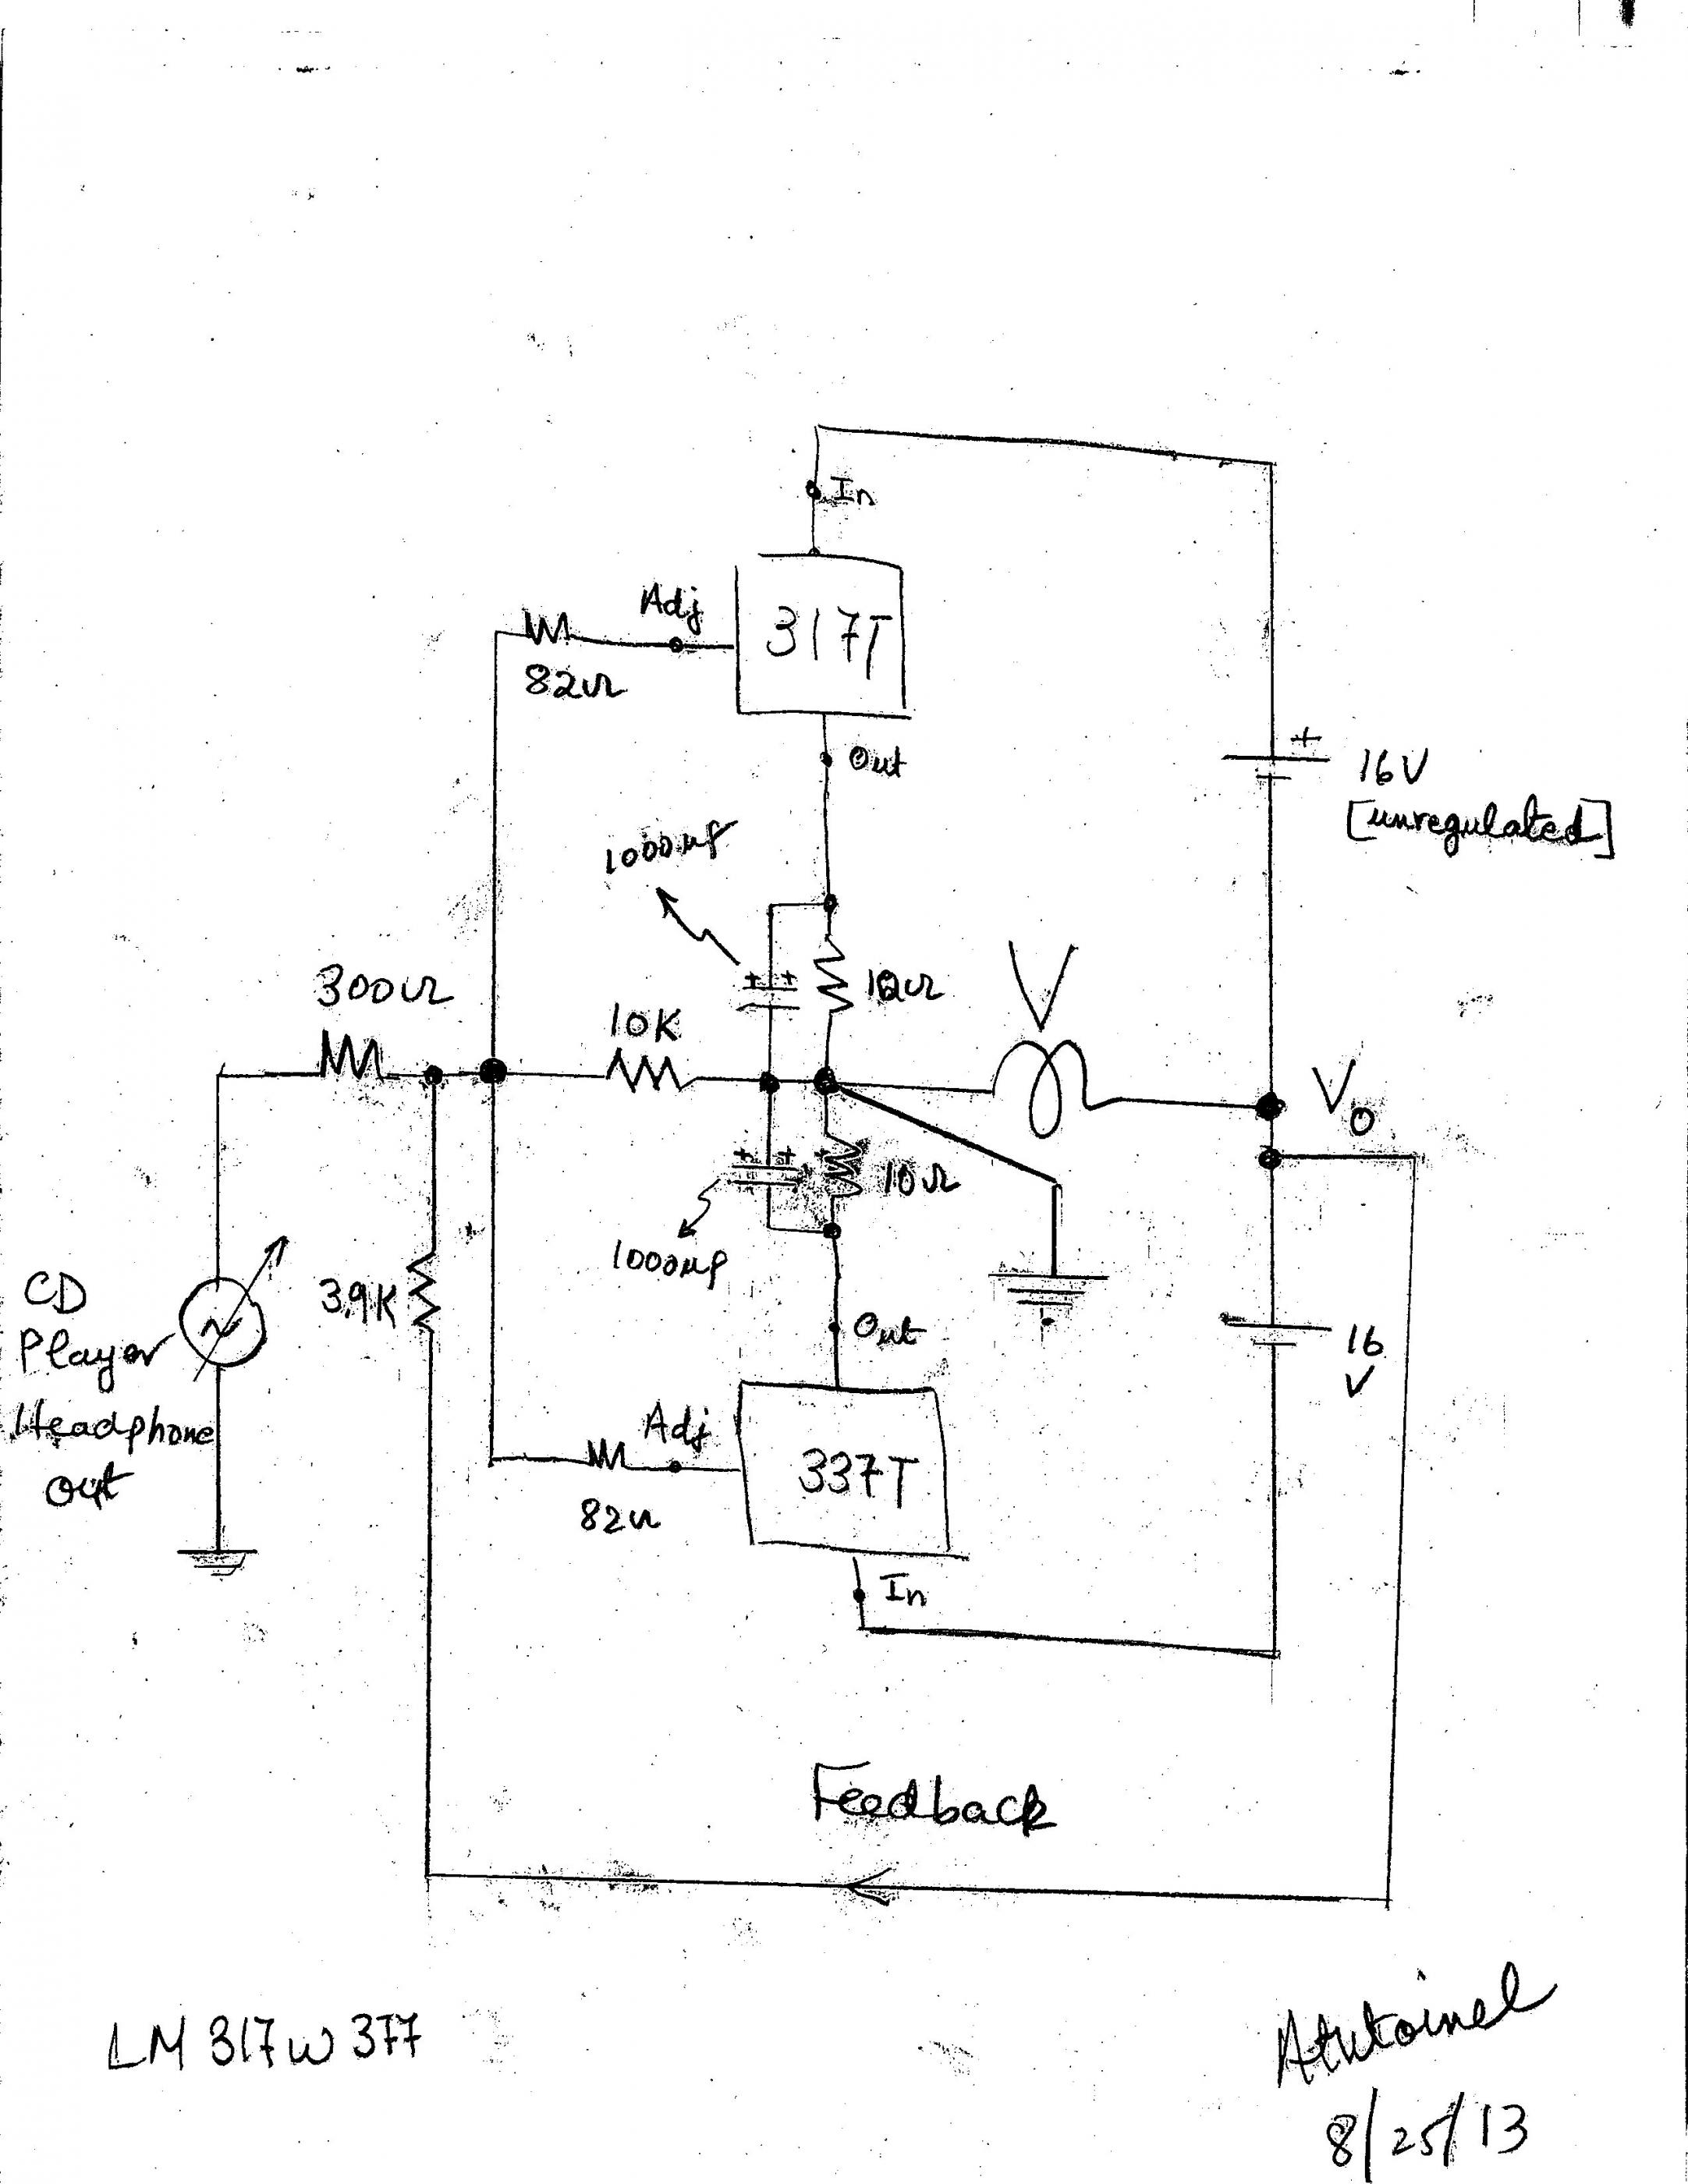 In
Adj
317T
82Ω
Out
16V
[unregulated]
1000µf
300Ω
10K
10Ω
V
V₀
10Ω
1000µf
CD
Player
Headphone
out
3.9K
Out
16
V
Adj
337T
82Ω
In
Feedback
LM 317 W 377
8/25/13